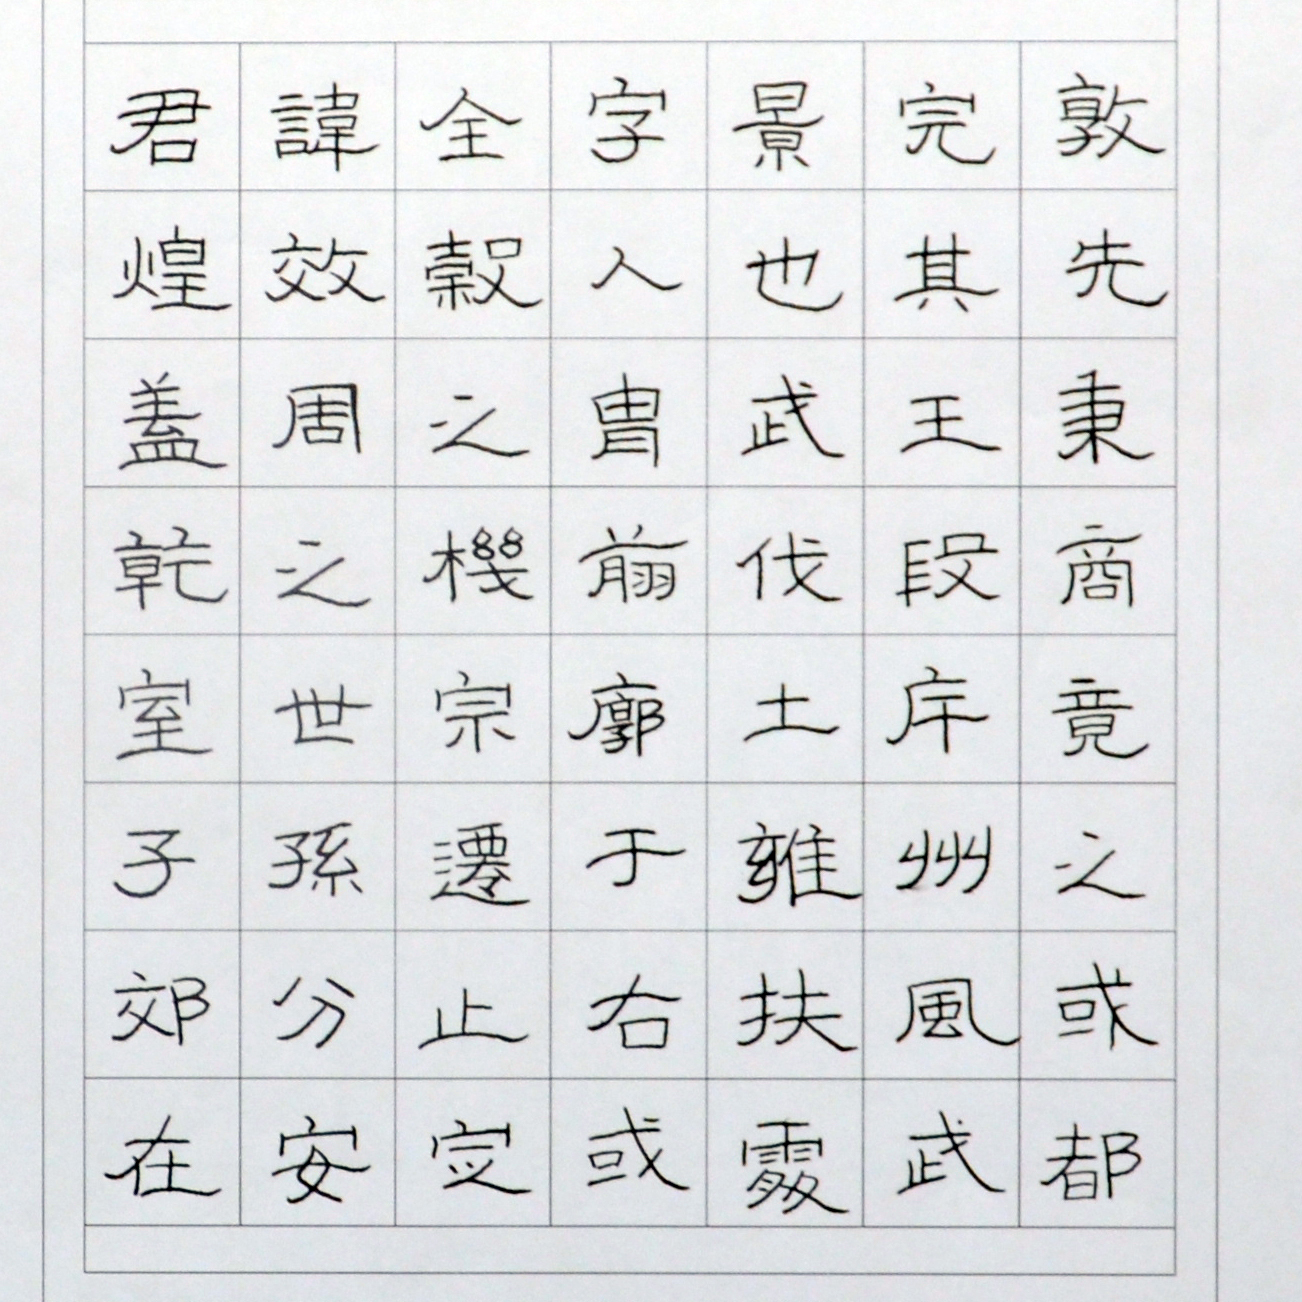 君諱全字景完敦
煌效穀人也其先
盖周之胄武王秉
乾之機翦伐殷商
室世宗廓土斥竟
子孫遷于雍州之
郊分止右扶風或
在安定或處武都